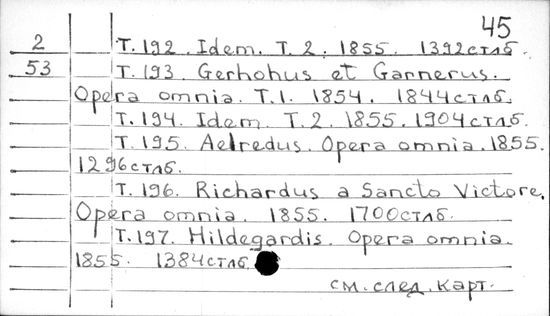 45
2 Т. 192. Idem. T. 2. 1855. 1392стлб.
53 Т. 193. Gerhohus et Garnerus.
Opera omnia. T.1. 1854. 1844стлб.
Т. 194. Idem. T. 2. 1855. 1904стлб.
Т. 195. Aelredus. Opera omnia. 1855.
1296стлб.
Т. 196. Richardus a Sancto Victore.
Opera omnia. 1855. 1700стлб.
Т. 197. Hildegardis. Opera omnia.
1855. 1384стлб.
см. след. карт.